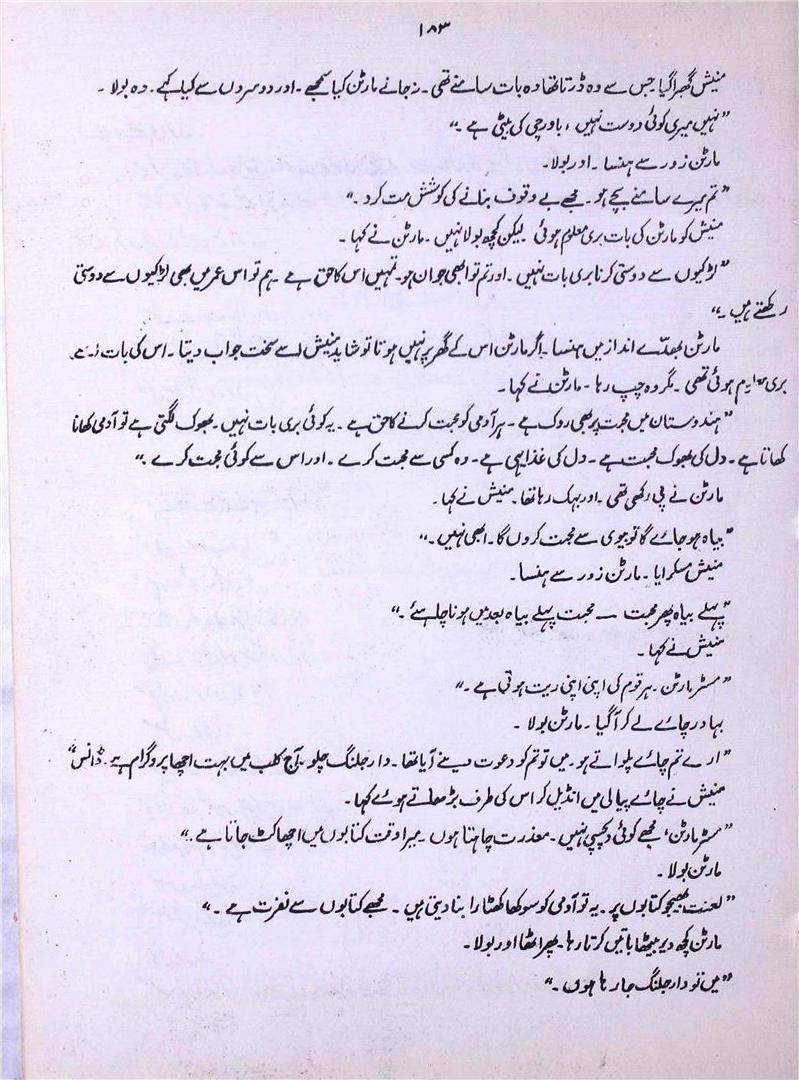 ۱۸۳
منیش گھبرا گیا جس سے وہ ڈرتا تھا وہ بات سامنے تھی ۔ نہ جانے مارٹن کیا سمجھے ۔ اور دوسروں سے کیا کہے ۔ وہ بولا ۔
"نہیں میری کوئی دوست نہیں ، باورچی کی بیٹی ہے ۔"
مارٹن زور سے ہنسا ۔ اور بولا ۔
"تم میرے سامنے بچے ہو ۔ مجھے بے وقوف بنانے کی کوشش مت کرو ۔"
منیش کو مارٹن کی بات بری معلوم ہوئی لیکن کچھ بولا نہیں ۔ مارٹن نے کہا ۔
"لڑکیوں سے دوستی کرنا بری بات نہیں ۔ اور تم تو ابھی جوان ہو ۔ تمہیں اس کا حق ہے ۔ ہم تو اس عمر میں بھی لڑکیوں سے دوستی
رکھتے ہیں ۔"
مارٹن بھدّے انداز میں ہنسا ۔ اگر مارٹن اس کے گھر پر نہیں ہوتا تو شاید منیش اسے سخت جواب دیتا ۔ اس کی بات
بری معلوم ہوئی تھی ۔ مگر وہ چپ رہا ۔ مارٹن نے کہا ۔
"ہندوستان میں محبت پر بھی روک ہے ۔ ہر آدمی کو محبت کرنے کا حق ہے ۔ یہ کوئی بری بات نہیں ۔ بھوک لگتی ہے تو آدمی کھانا
کھاتا ہے ۔ دل کی بھوک محبت ہے ۔ دل کی غذا یہی ہے ۔ وہ کسی سے محبت کرے ۔ اور اس سے کوئی محبت کرے ۔"
مارٹن نے پی رکھی تھی ۔ اور بہک رہا تھا ۔ منیش نے کہا ۔
"بیاہ ہو جائے گا تو بیوی سے محبت کروں گا ۔ ابھی نہیں ۔"
منیش مسکرایا ۔ مارٹن زور سے ہنسا ۔
"پہلے بیاہ پھر محبت — محبت پہلے بیاہ بعد میں ہونا چاہئے ۔"
منیش نے کہا ۔
"مسٹر مارٹن ۔ ہر قوم کی اپنی اپنی ریت ہوتی ہے ۔"
بہادر چائے لے کر آ گیا ۔ مارٹن بولا ۔
"ارے تم چائے پلواتے ہو ۔ میں تو تم کو دعوت دینے آیا تھا ۔ دارجلنگ چلو ۔ آج کلب میں بہت اچھا پروگرام ہے ۔ ڈانس"
منیش نے چائے پیالی میں انڈیل کر اس کی طرف بڑھاتے ہوئے کہا ۔
"مسٹر مارٹن ، مجھے کوئی دلچسپی نہیں ۔ معذرت چاہتا ہوں ۔ میرا وقت کتابوں میں اچھا کٹ جاتا ہے ۔"
مارٹن بولا ۔
"لعنت بھیجو کتابوں پر ۔ یہ تو آدمی کو سوکھا کھٹارا بنا دیتی ہیں ۔ مجھے کتابوں سے نفرت ہے ۔"
مارٹن کچھ دیر بیٹھا باتیں کرتا رہا ۔ پھر اٹھا اور بولا ۔
"میں تو دارجلنگ جا رہا ہوں ۔"